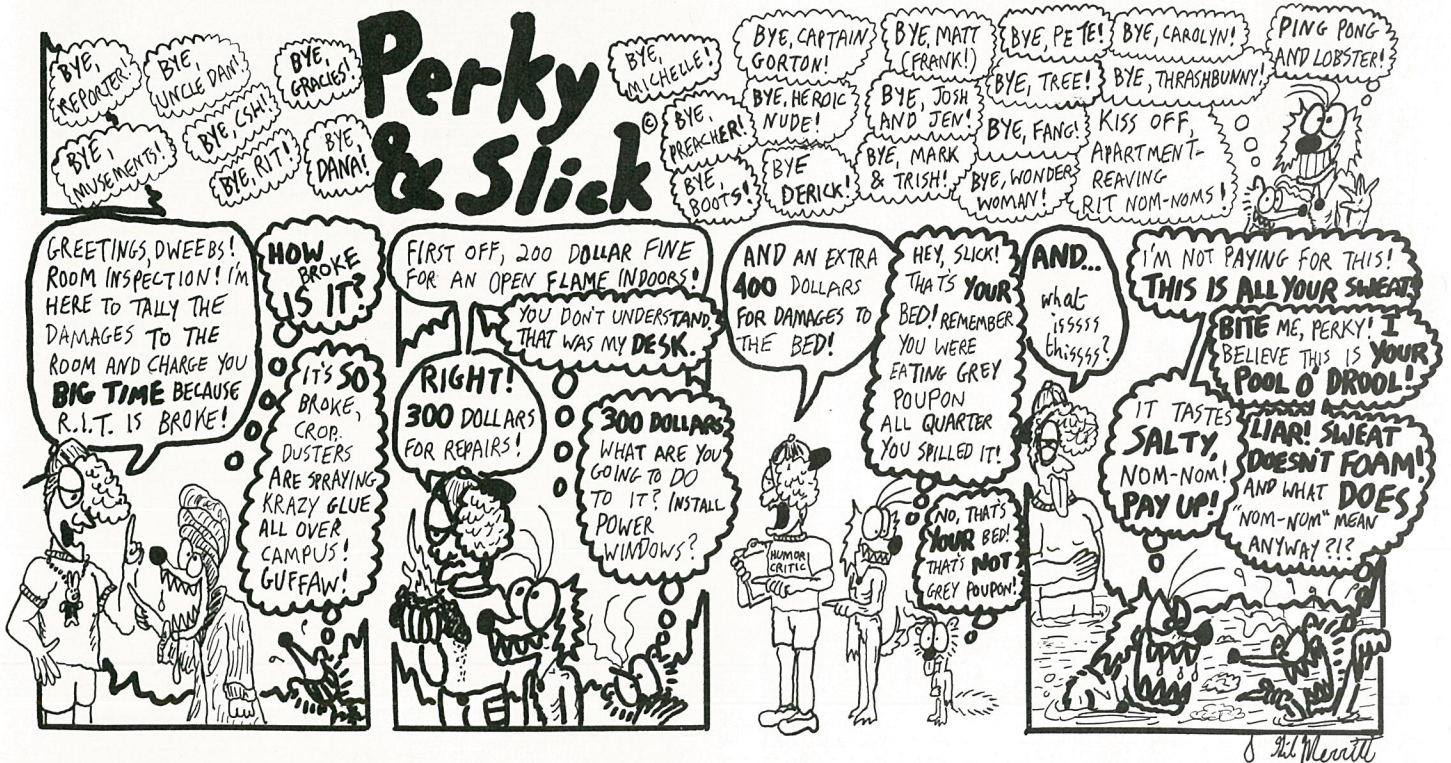 BYE,
REPORTER!
BYE,
UNCLE DAN!
BYE,
GRACIES!
BYE,
MUSEMENTS!
BYE, CSH!
BYE, RIT!
BYE,
DANA!
Perky
& Slick
©
BYE,
MICHELLE!
BYE, CAPTAIN
GORTON!
BYE, MATT
(FRANK!)
BYE, PETE!
BYE, CAROLYN!
PING PONG
AND LOBSTER!
BYE,
PREACHER!
BYE, HEROIC
NUDE!
BYE, JOSH
AND JEN!
BYE, TREE!
BYE, THRASHBUNNY!
BYE, FANG!
BYE,
BOOTS!
BYE
DERICK!
BYE, MARK
& TRISH!
BYE, WONDER
WOMAN!
KISS OFF,
APARTMENT-
REAVING
RIT NOM-NOMS!
GREETINGS, DWEEBS!
ROOM INSPECTION! I'M
HERE TO TALLY THE
DAMAGES TO THE
ROOM AND CHARGE YOU
BIG TIME BECAUSE
R.I.T. IS BROKE!
HOW
BROKE
IS IT?
IT'S SO
BROKE,
CROP
DUSTERS
ARE SPRAYING
KRAZY GLUE
ALL OVER
CAMPUS!
GUFFAW!
FIRST OFF, 200 DOLLAR FINE
FOR AN OPEN FLAME INDOORS!
YOU DON'T UNDERSTAND.
THAT WAS MY DESK.
RIGHT!
300 DOLLARS
FOR REPAIRS!
300 DOLLARS
WHAT ARE YOU
GOING TO DO
TO IT? INSTALL
POWER
WINDOWS?
AND AN EXTRA
400 DOLLARS
FOR DAMAGES TO
THE BED!
HEY, SLICK!
THAT'S YOUR
BED! REMEMBER
YOU WERE
EATING GREY
POUPON
ALL QUARTER
YOU SPILLED IT!
NO, THAT'S
YOUR BED!
THAT'S NOT
GREY POUPON!
HUMOR
CRITIC
AND...
what
isssss
thissss?
I'M NOT PAYING FOR THIS!
THIS IS ALL YOUR SWEAT!
BITE ME, PERKY! I
BELIEVE THIS IS YOUR
POOL O' DROOL!
IT TASTES
SALTY,
NOM-NOM!
PAY UP!
LIAR! SWEAT
DOESN'T FOAM!
AND WHAT DOES
"NOM-NOM" MEAN
ANYWAY?!?
Merritt